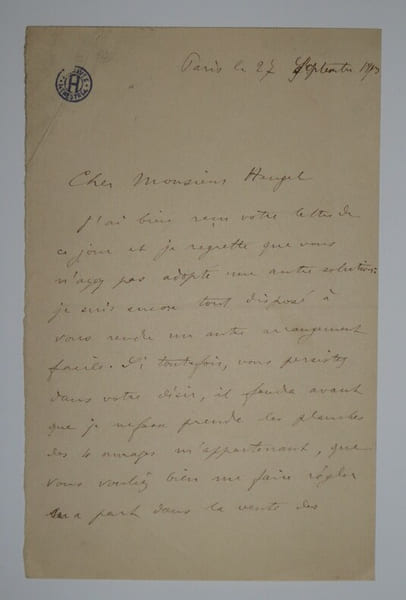 Paris le 27 Septembre
Cher Monsieur Heugel
J'ai bien reçu votre lettre de
ce jour et je regrette que vous
n'ayez pas adopté une autre solution.
je suis encore tout disposé à
vous rendre un autre arrangement
facile. Si toutefois, vous persistez
dans votre désir, il faudra avant
que je prenne les planches
des 4 ouvrages m'appartenant, que
vous vouliez bien me faire régler
ma part dans la vente des